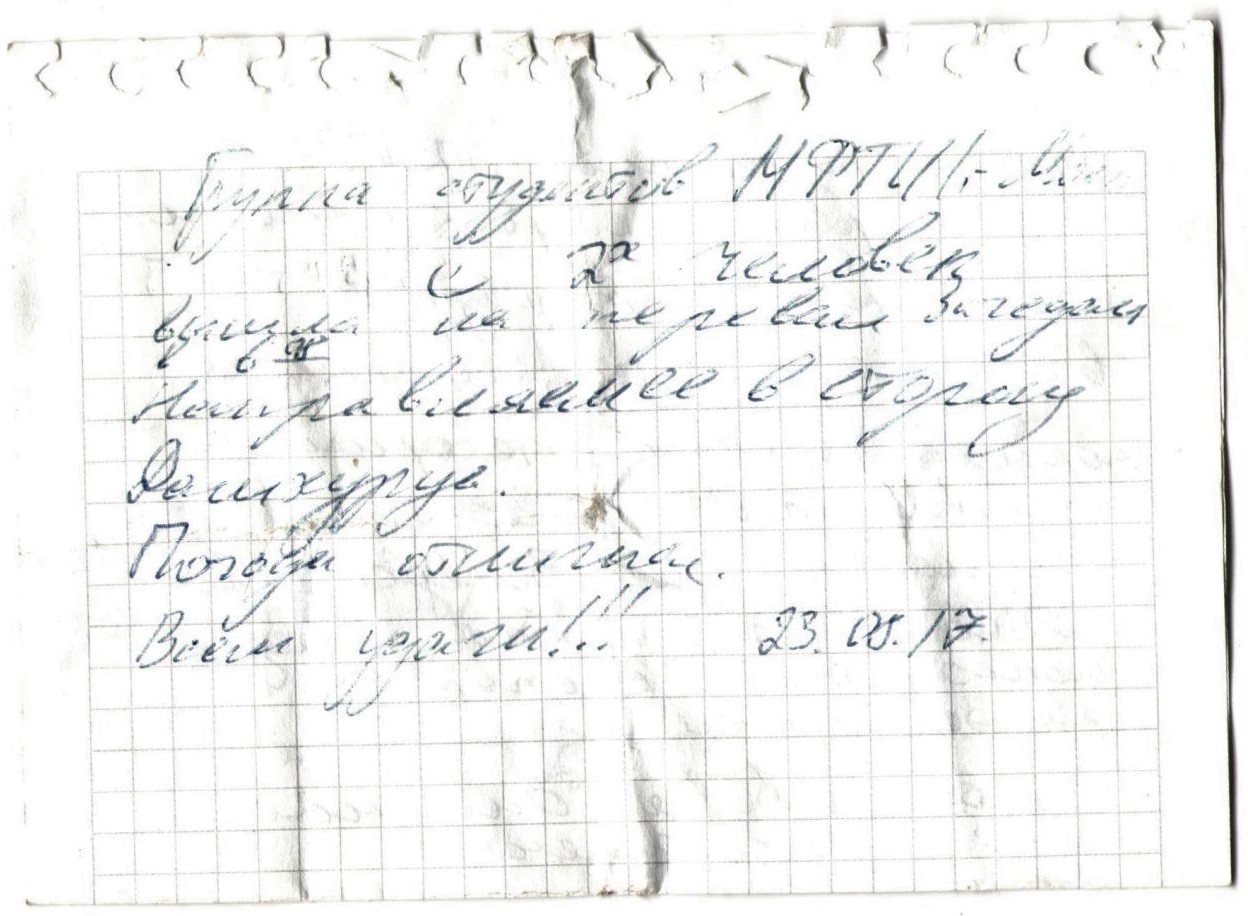 Группа студентов МФТИ г.
из 2х человек
вышла на перевал
в
Направляемся в сторону
Погода отличная.
Всем удачи!!! 23.08.17.